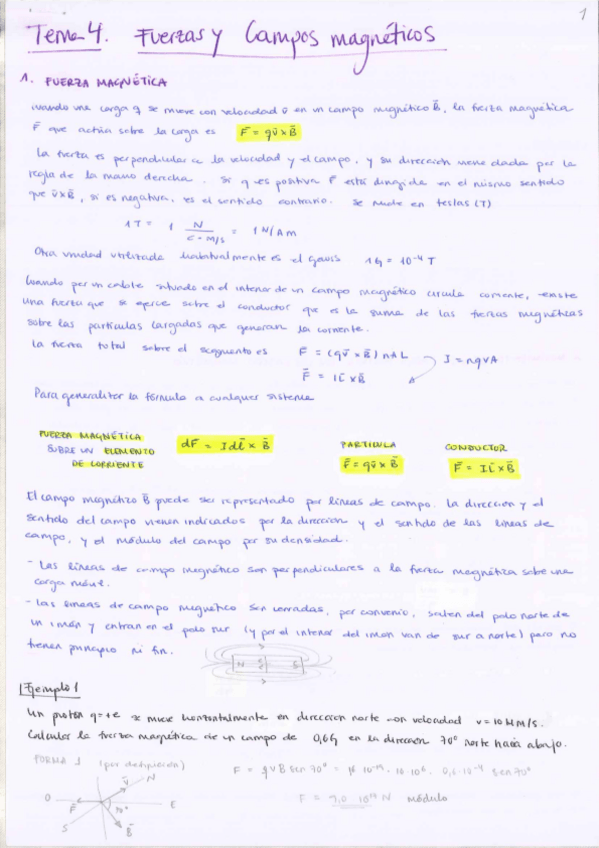 1
Tema 4. Fuerzas y Campos magnéticos
1. FUERZA MAGNÉTICA
cuando una carga q se mueve con velocidad v̄ en un campo magnético B̄, la fuerza magnética
F̄ que actúa sobre la carga es F̄ = qv̄ x B̄
La fuerza es perpendicular a la velocidad y el campo, y su dirección viene dada por la
regla de la mano derecha. Si q es positiva F̄ está dirigida en el mismo sentido
que v̄ x B̄, si es negativa, es el sentido contrario. Se mide en teslas (T)
1T = 1 N / C·m/s = 1 N/Am
Otra unidad utilizada habitualmente es el Gauss 1G = 10⁻⁴ T
Cuando por un cable situado en el interior de un campo magnético circula corriente, existe
una fuerza que se ejerce sobre el conductor que es la suma de las fuerzas magnéticas
sobre las partículas cargadas que generan la corriente.
La fuerza total sobre el segmento es F̄ = (qv̄ x B̄) nAL
I = nqvA
F̄ = IL̄ x B̄
Para generalizar la fórmula a cualquier sistema
FUERZA MAGNÉTICA
SOBRE UN ELEMENTO
DE CORRIENTE
dF̄ = Idl̄ x B̄
PARTÍCULA
F̄ = qv̄ x B̄
CONDUCTOR
F̄ = IL̄ x B̄
El campo magnético B̄ puede ser representado por líneas de campo. La dirección y el
sentido del campo vienen indicados por la dirección y el sentido de las líneas de
campo, y el módulo del campo por su densidad.
- Las líneas de campo magnético son perpendiculares a la fuerza magnética sobre una
carga móvil.
- Las líneas de campo magnético son cerradas, por convenio, salen del polo norte de
un imán y entran en el polo sur (y por el interior del imán van de sur a norte) pero no
tienen principio ni fin.
N S
Ejemplo 1
Un protón q=+e se mueve horizontalmente en dirección norte con velocidad v=10 Mm/s.
Calcular la fuerza magnética de un campo de 0,6G en la dirección 70° norte hacia abajo.
FORMA 1 (por definición)
F = qvB sen 70° = 
F = 9,0 · N módulo
N
v̄
O
F̄
E
70°
S
B̄